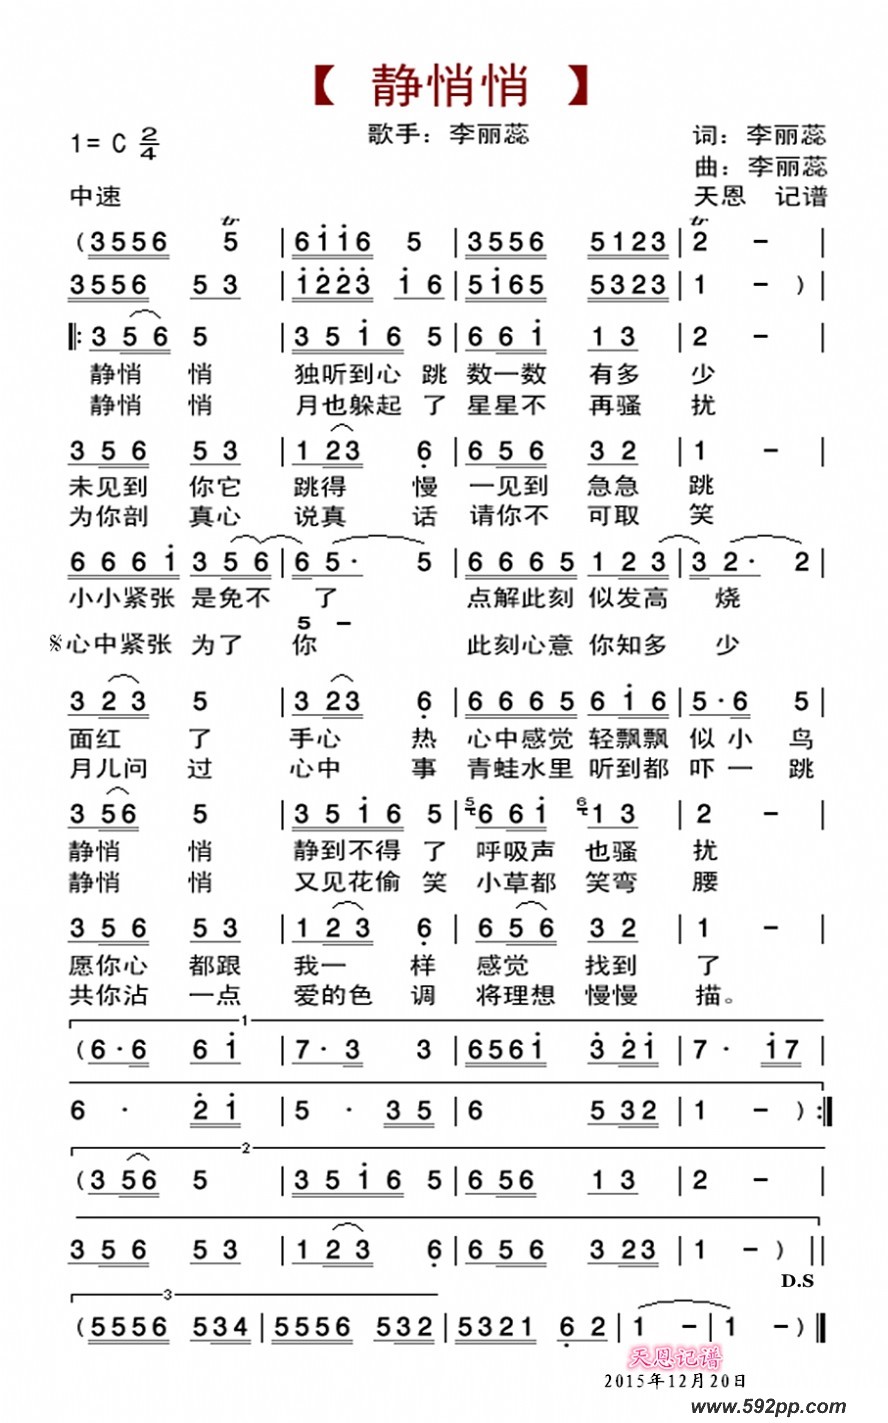 【 静悄悄 】
1= C 2/4 歌手：李丽蕊 词：李丽蕊
曲：李丽蕊
中速 天恩 记谱
(3556 5 | 6i i6 5 | 3556 5123 | 2 - |
3556 53 | i223 i6 | 5i65 5323 | 1 - ) |
‖: 3 56 5 | 35i6 5 | 66i 13 | 2 - |
静悄 悄 独听到心 跳 数一数 有多 少
静悄 悄 月也躲起 了 星星不 再骚 扰
356 53 | 123 6 | 656 32 | 1 - |
未见到 你它 跳得 慢 一见到 急急 跳
为你剖 真心 说真 话 请你不 可取 笑
666i 356 | 65· 5 | 6665 123 | 32· 2 |
小小紧张 是免不 了 点解此刻 似发高 烧
5 -
𝄋心中紧张 为了 你 此刻心意 你知多 少
323 5 | 323 6 | 6665 6i6 | 5·6 5 |
面红 了 手心 热 心中感觉 轻飘飘 似小 鸟
月儿问 过 心中 事 青蛙水里 听到都 吓一 跳
356 5 | 35i6 5 | 5 66i 6 13 | 2 - |
静悄 悄 静到不得 了 呼吸声 也骚 扰
静悄 悄 又见花偷 笑 小草都 笑弯 腰
356 53 | 123 6 | 656 32 | 1 - |
愿你心 都跟 我一 样 感觉 找到 了
共你沾 一点 爱的色 调 将理想 慢慢 描。
1
(6·6 6i | 7·3 3 | 656i 32i | 7· i7 |
6 · 2i | 5 · 35 | 6 532 | 1 - ) :‖
2
(356 5 | 35i6 5 | 656 13 | 2 - |
356 53 | 123 6 | 656 323 | 1 - ) ||
D.S
3
(5556 534 | 5556 532 | 5321 62 | 1 - | 1 - ) ‖
天恩记谱
2015年12月20日
www.592pp.com